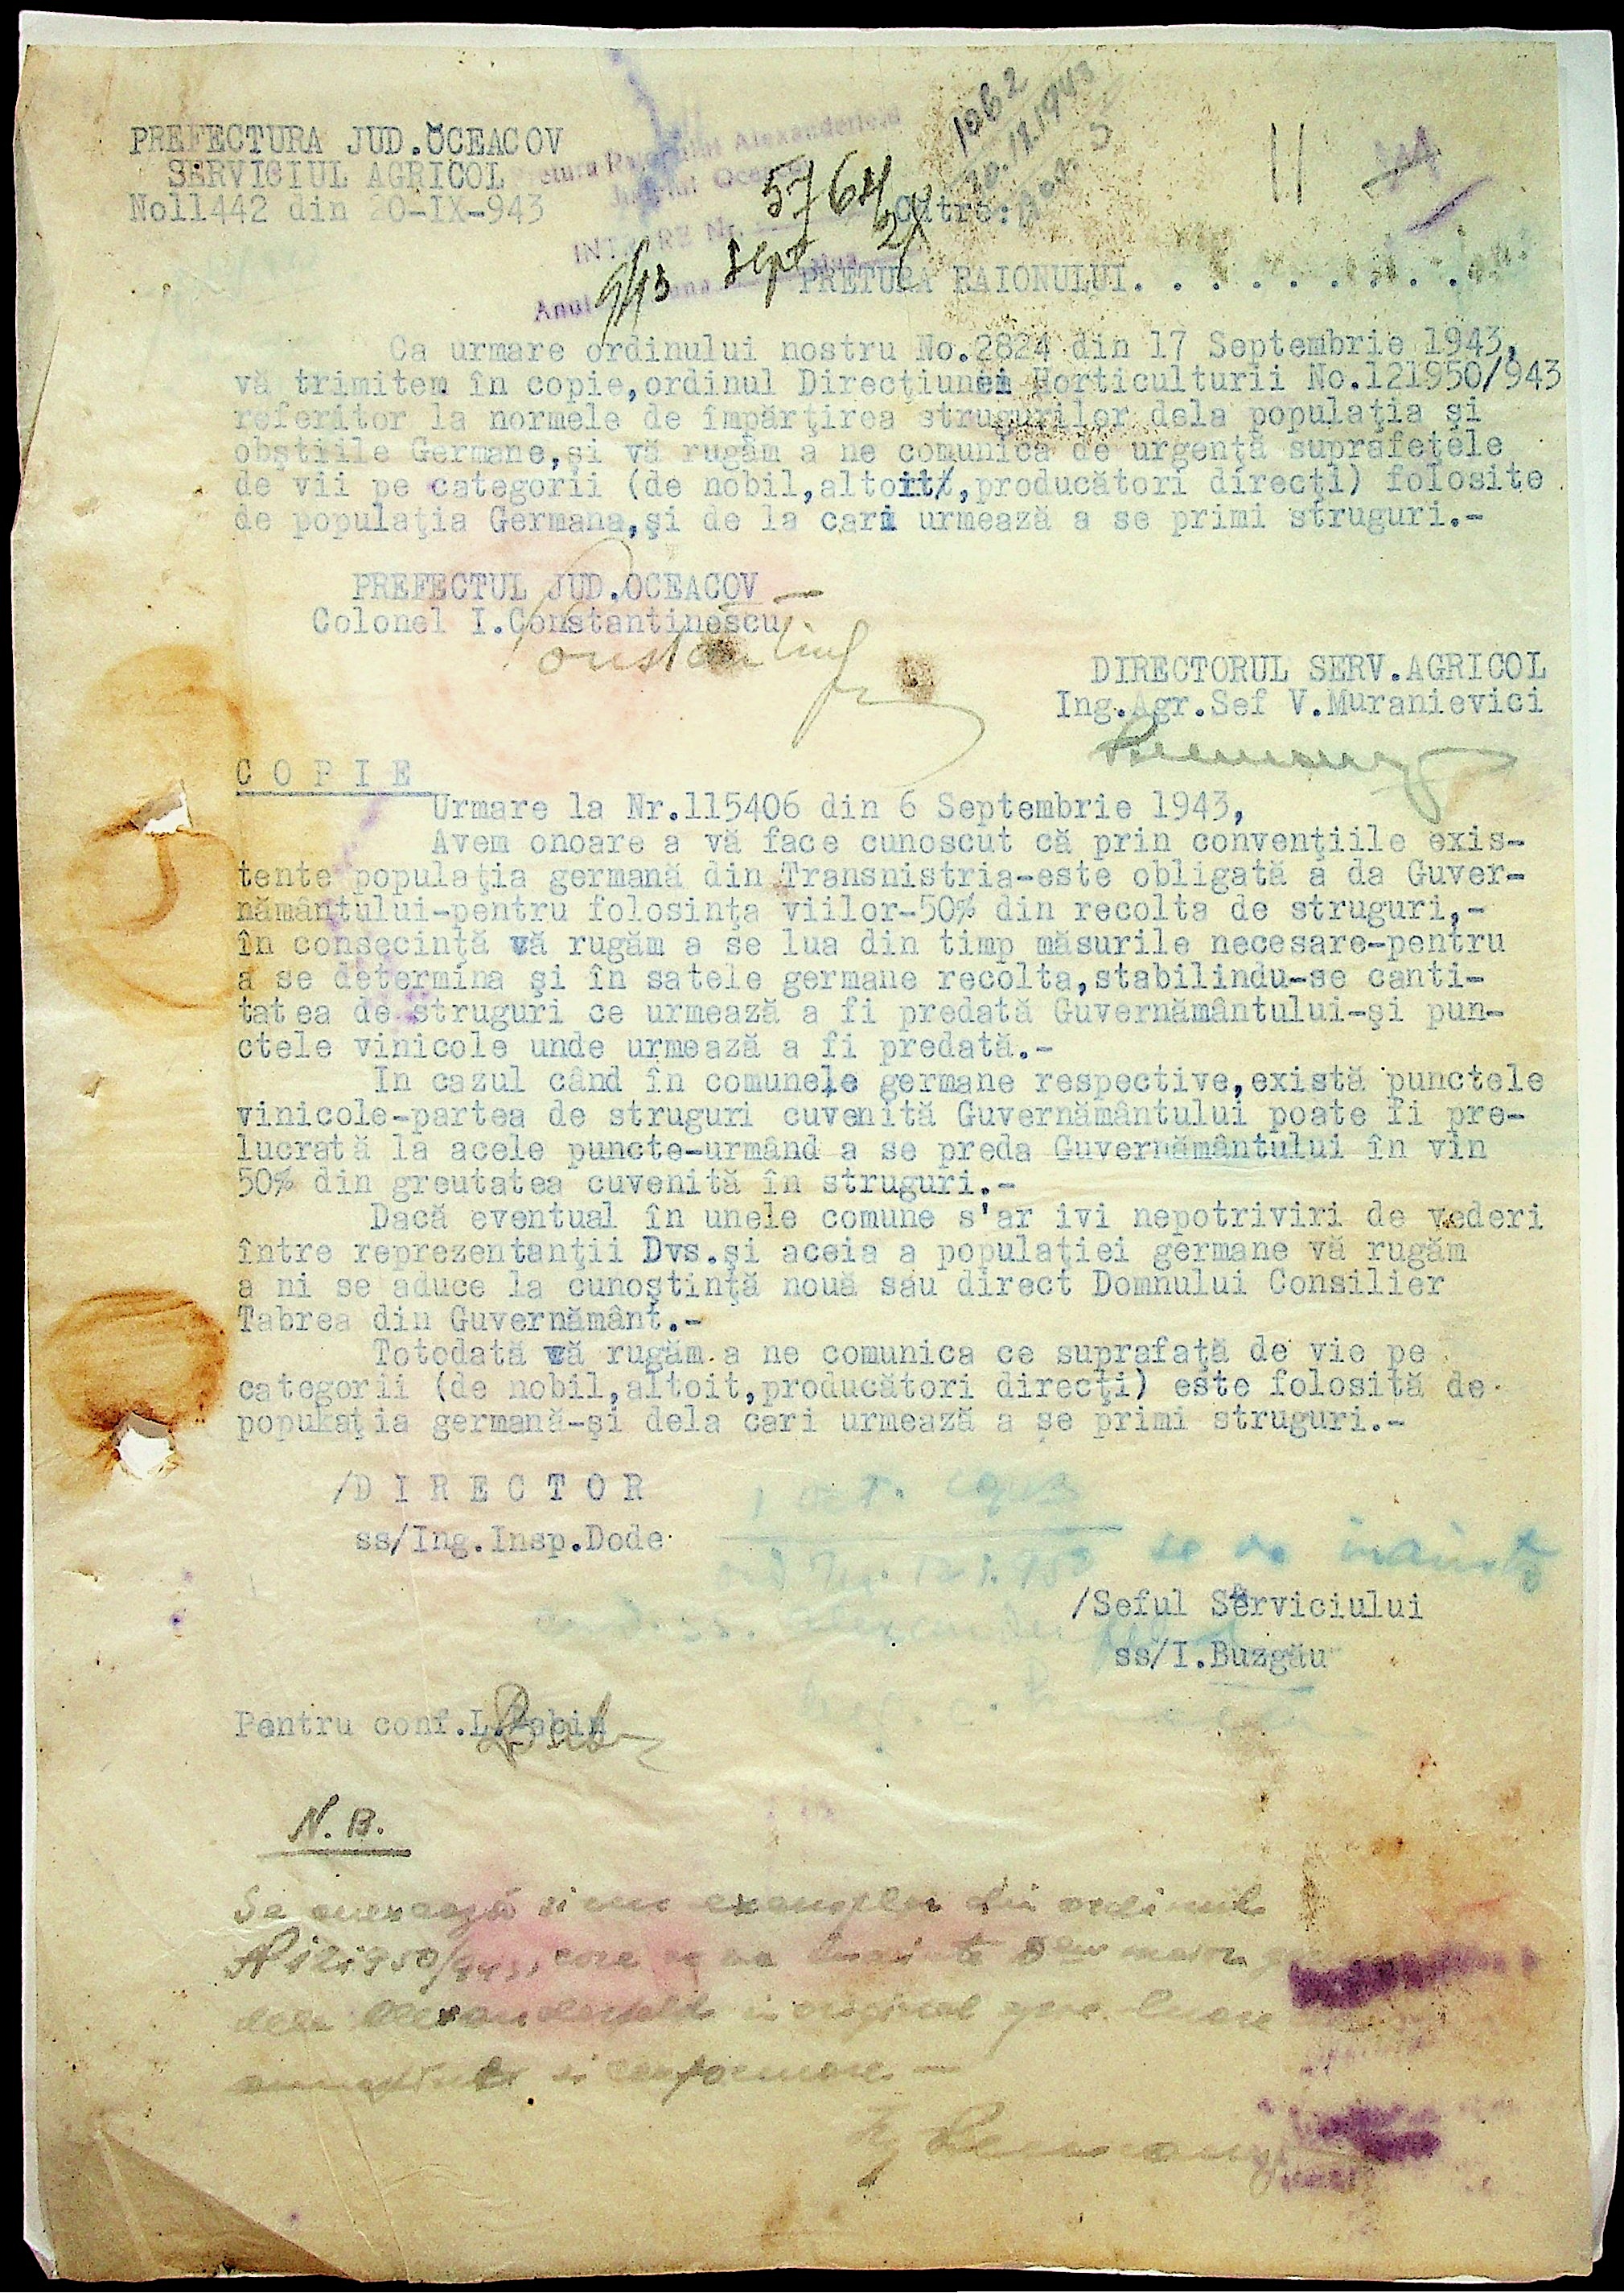 PREFECTURA JUD.OCEACOV
SERVICIUL AGRICOL
No11442 din 20-IX-943
Pretura Raionului Alexanderfeld
Județul Oceacov
INTRARE Nr. 5764
Anul 943 Sept 24
1062
11
Către:
PRETURA RAIONULUI. . . . . . . . .
Ca urmare ordinului nostru No.2824 din 17 Septembrie 1943,
vă trimitem în copie,ordinul Direcţiunei Horticulturii No.121950/943
referitor la normele de împărţirea strugurilor dela populaţia şi
obştiile Germane,şi vă rugăm a ne comunica de urgenţă suprafeţele
de vii pe categorii (de nobil,altoit/,producători direcţi) folosite
de populaţia Germana,şi de la cari urmează a se primi struguri.-
PREFECTUL JUD.OCEACOV
Colonel I.Constantinescu
DIRECTORUL SERV.AGRICOL
Ing.Agr.Sef V.Muranievici
C O P I E
Urmare la Nr.115406 din 6 Septembrie 1943,
Avem onoare a vă face cunoscut că prin convenţiile exis-
tente populaţia germană din Transnistria-este obligată a da Guver-
nământului-pentru folosinţa viilor-50% din recolta de struguri,-
în consecinţă vă rugăm a se lua din timp măsurile necesare-pentru
a se determina şi în satele germane recolta,stabilindu-se canti-
tatea de struguri ce urmează a fi predată Guvernământului-şi pun-
ctele vinicole unde urmează a fi predată.-
In cazul când în comunele germane respective,există punctele
vinicole-partea de struguri cuvenită Guvernământului poate fi pre-
lucrată la acele puncte-urmând a se preda Guvernământului în vin
50% din greutatea cuvenită în struguri.-
Dacă eventual în unele comune s'ar ivi nepotriviri de vederi
între reprezentanţii Dvs.şi aceia a populaţiei germane vă rugăm
a ni se aduce la cunoştinţă nouă sau direct Domnului Consilier
Tabrea din Guvernământ.-
Totodată vă rugăm a ne comunica ce suprafaţă de vie pe
categorii (de nobil,altoit,producători direcţi) este folosită de
popukaţia germană-şi dela cari urmează a se primi struguri.-
/D I R E C T O R
ss/Ing.Insp.Dode
se va inainta
/Seful Serviciului
ss/I.Buzgău
Pentru conf.L.
N. B.
Se anexează si un exemplar din ordinul
N 121950/943, care se va inainta
dela Alexanderfeld in original spre luare
si conformare. —